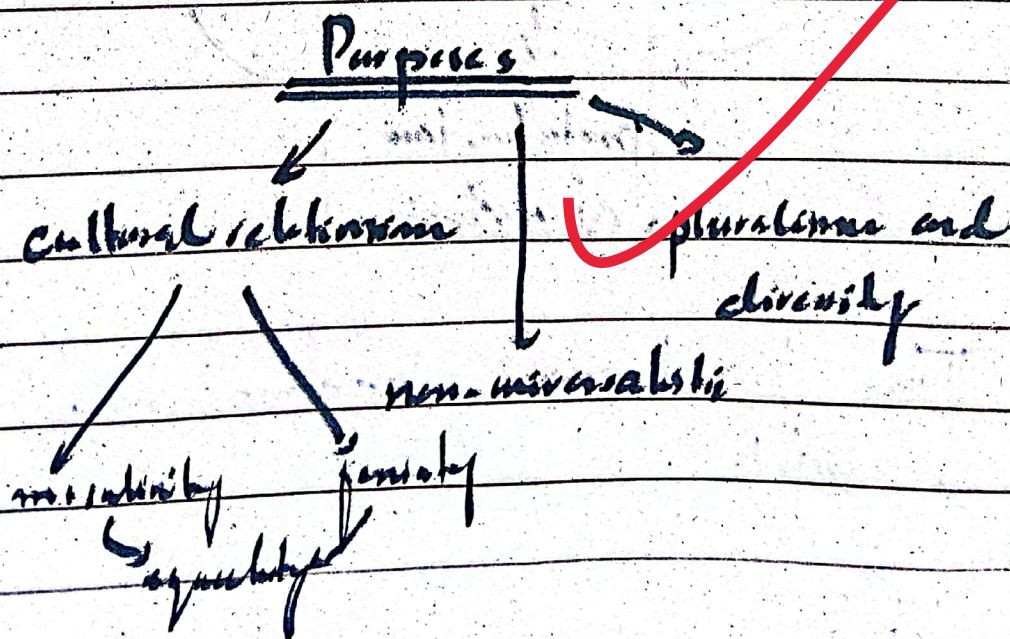 Purposes
cultural relativism
pluralism and
diversity
non-universalistic
masculinity
equality